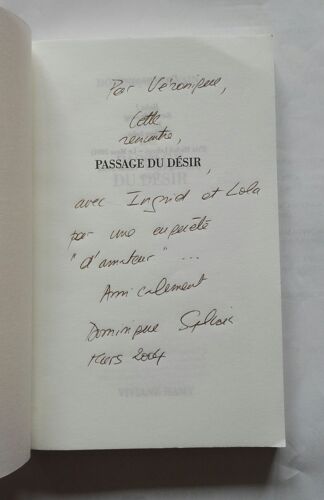 Pour Véronique,
Cette
rencontre,
PASSAGE DU DÉSIR,
avec Ingrid et Lola
par une enquête
"d'amateur" ...
Amicalement
Dominique Sylvain
Mars 2004
DU DÉSIR
VIVIANE HAMY